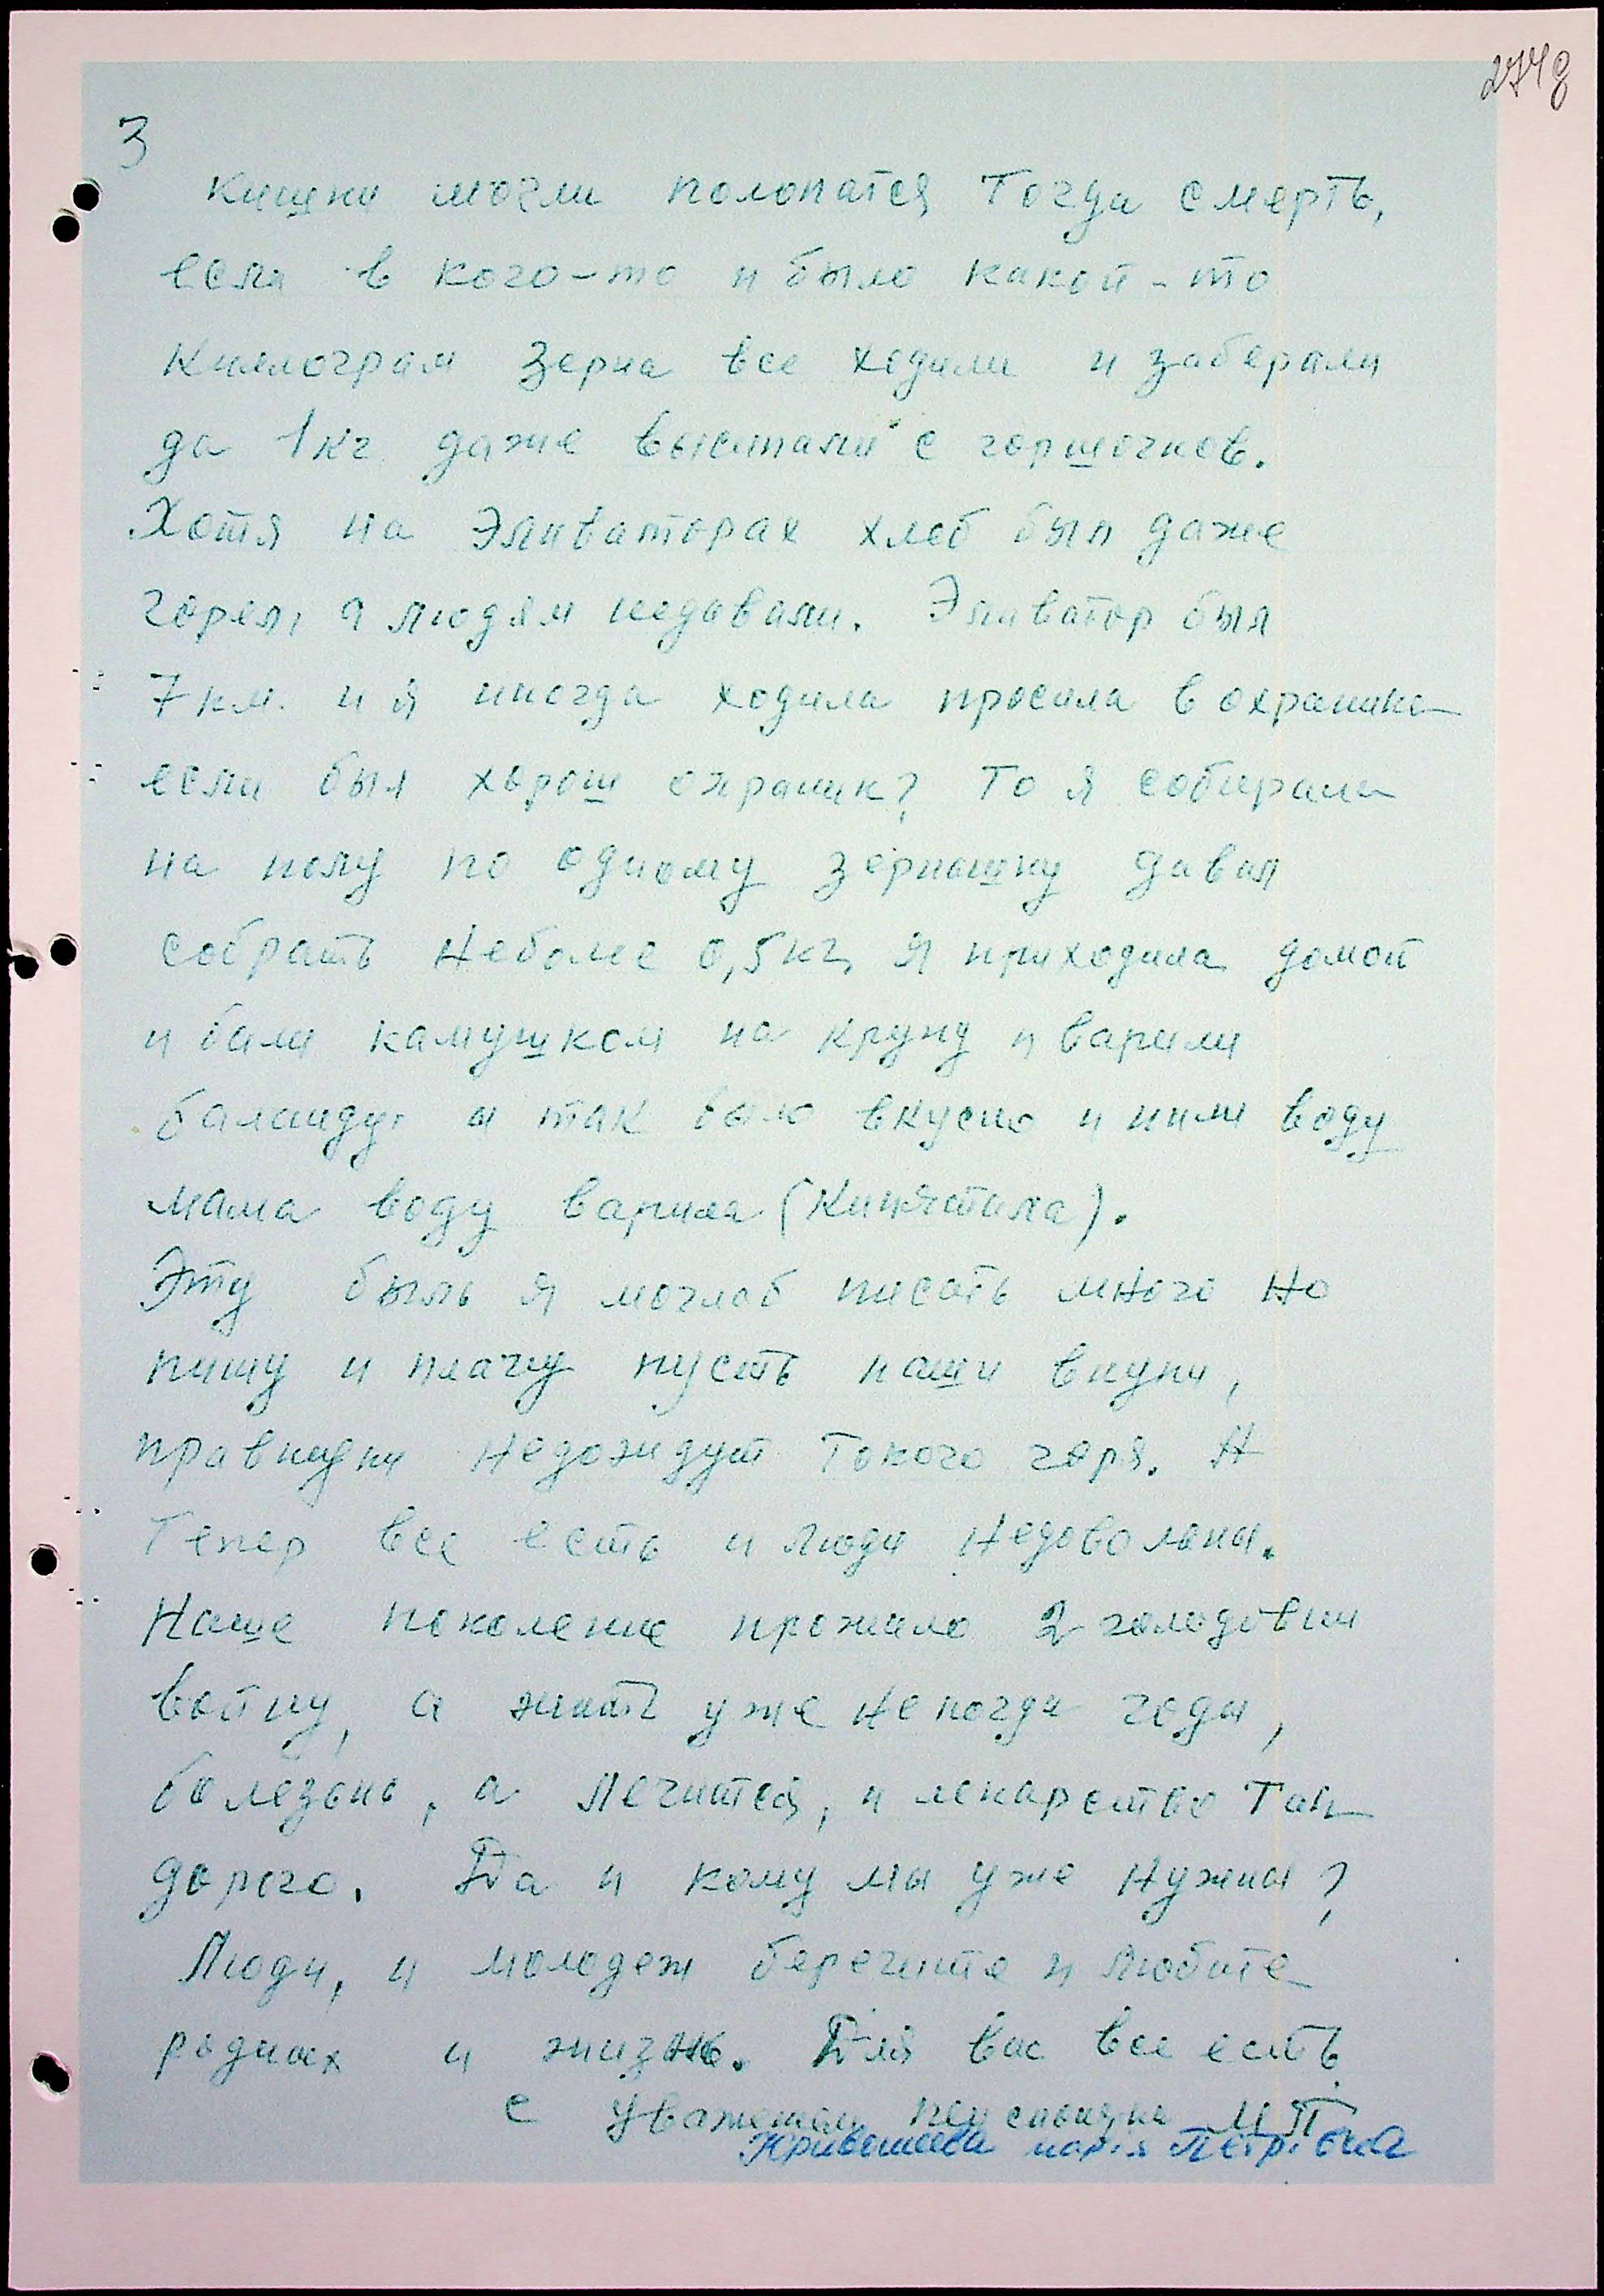 274д
3
кишки могли полопатся Тогда смерть,
если в кого-то и было какой-то
Киллограм зерна все ходили и заберали
да 1кг даже высыпали с горшочков.
Хотя на Эливаторах хлеб был даже
горел, а людям недавали. Эливатор был
7 км. и я иногда ходила просила в охраника
если был хорош охраник? То я собирала
на полу по одному зёрнышку давал
собрать неболее 0,5кг, я приходила домой
и били камушком на крупу и варили
баланду, и так было вкусно и пили воду
мама воду варила (Кипятила).
Эту быль я моглаб писать много но
пишу и плачу пусть наши внуки,
правнуки недожидут Токого горя. А
Тепер все есть и люди недовольны.
Наше поколение прожило 2 голодовки
войну, а жить уже некогда годы,
болезни, а лечится, и лекарство Так
дорого. Да и кому мы уже нужны?
Люди, и молодеж берегите и любите
родных и жизнь. Для вас все есть
с Уважением М П
марія Петрівна